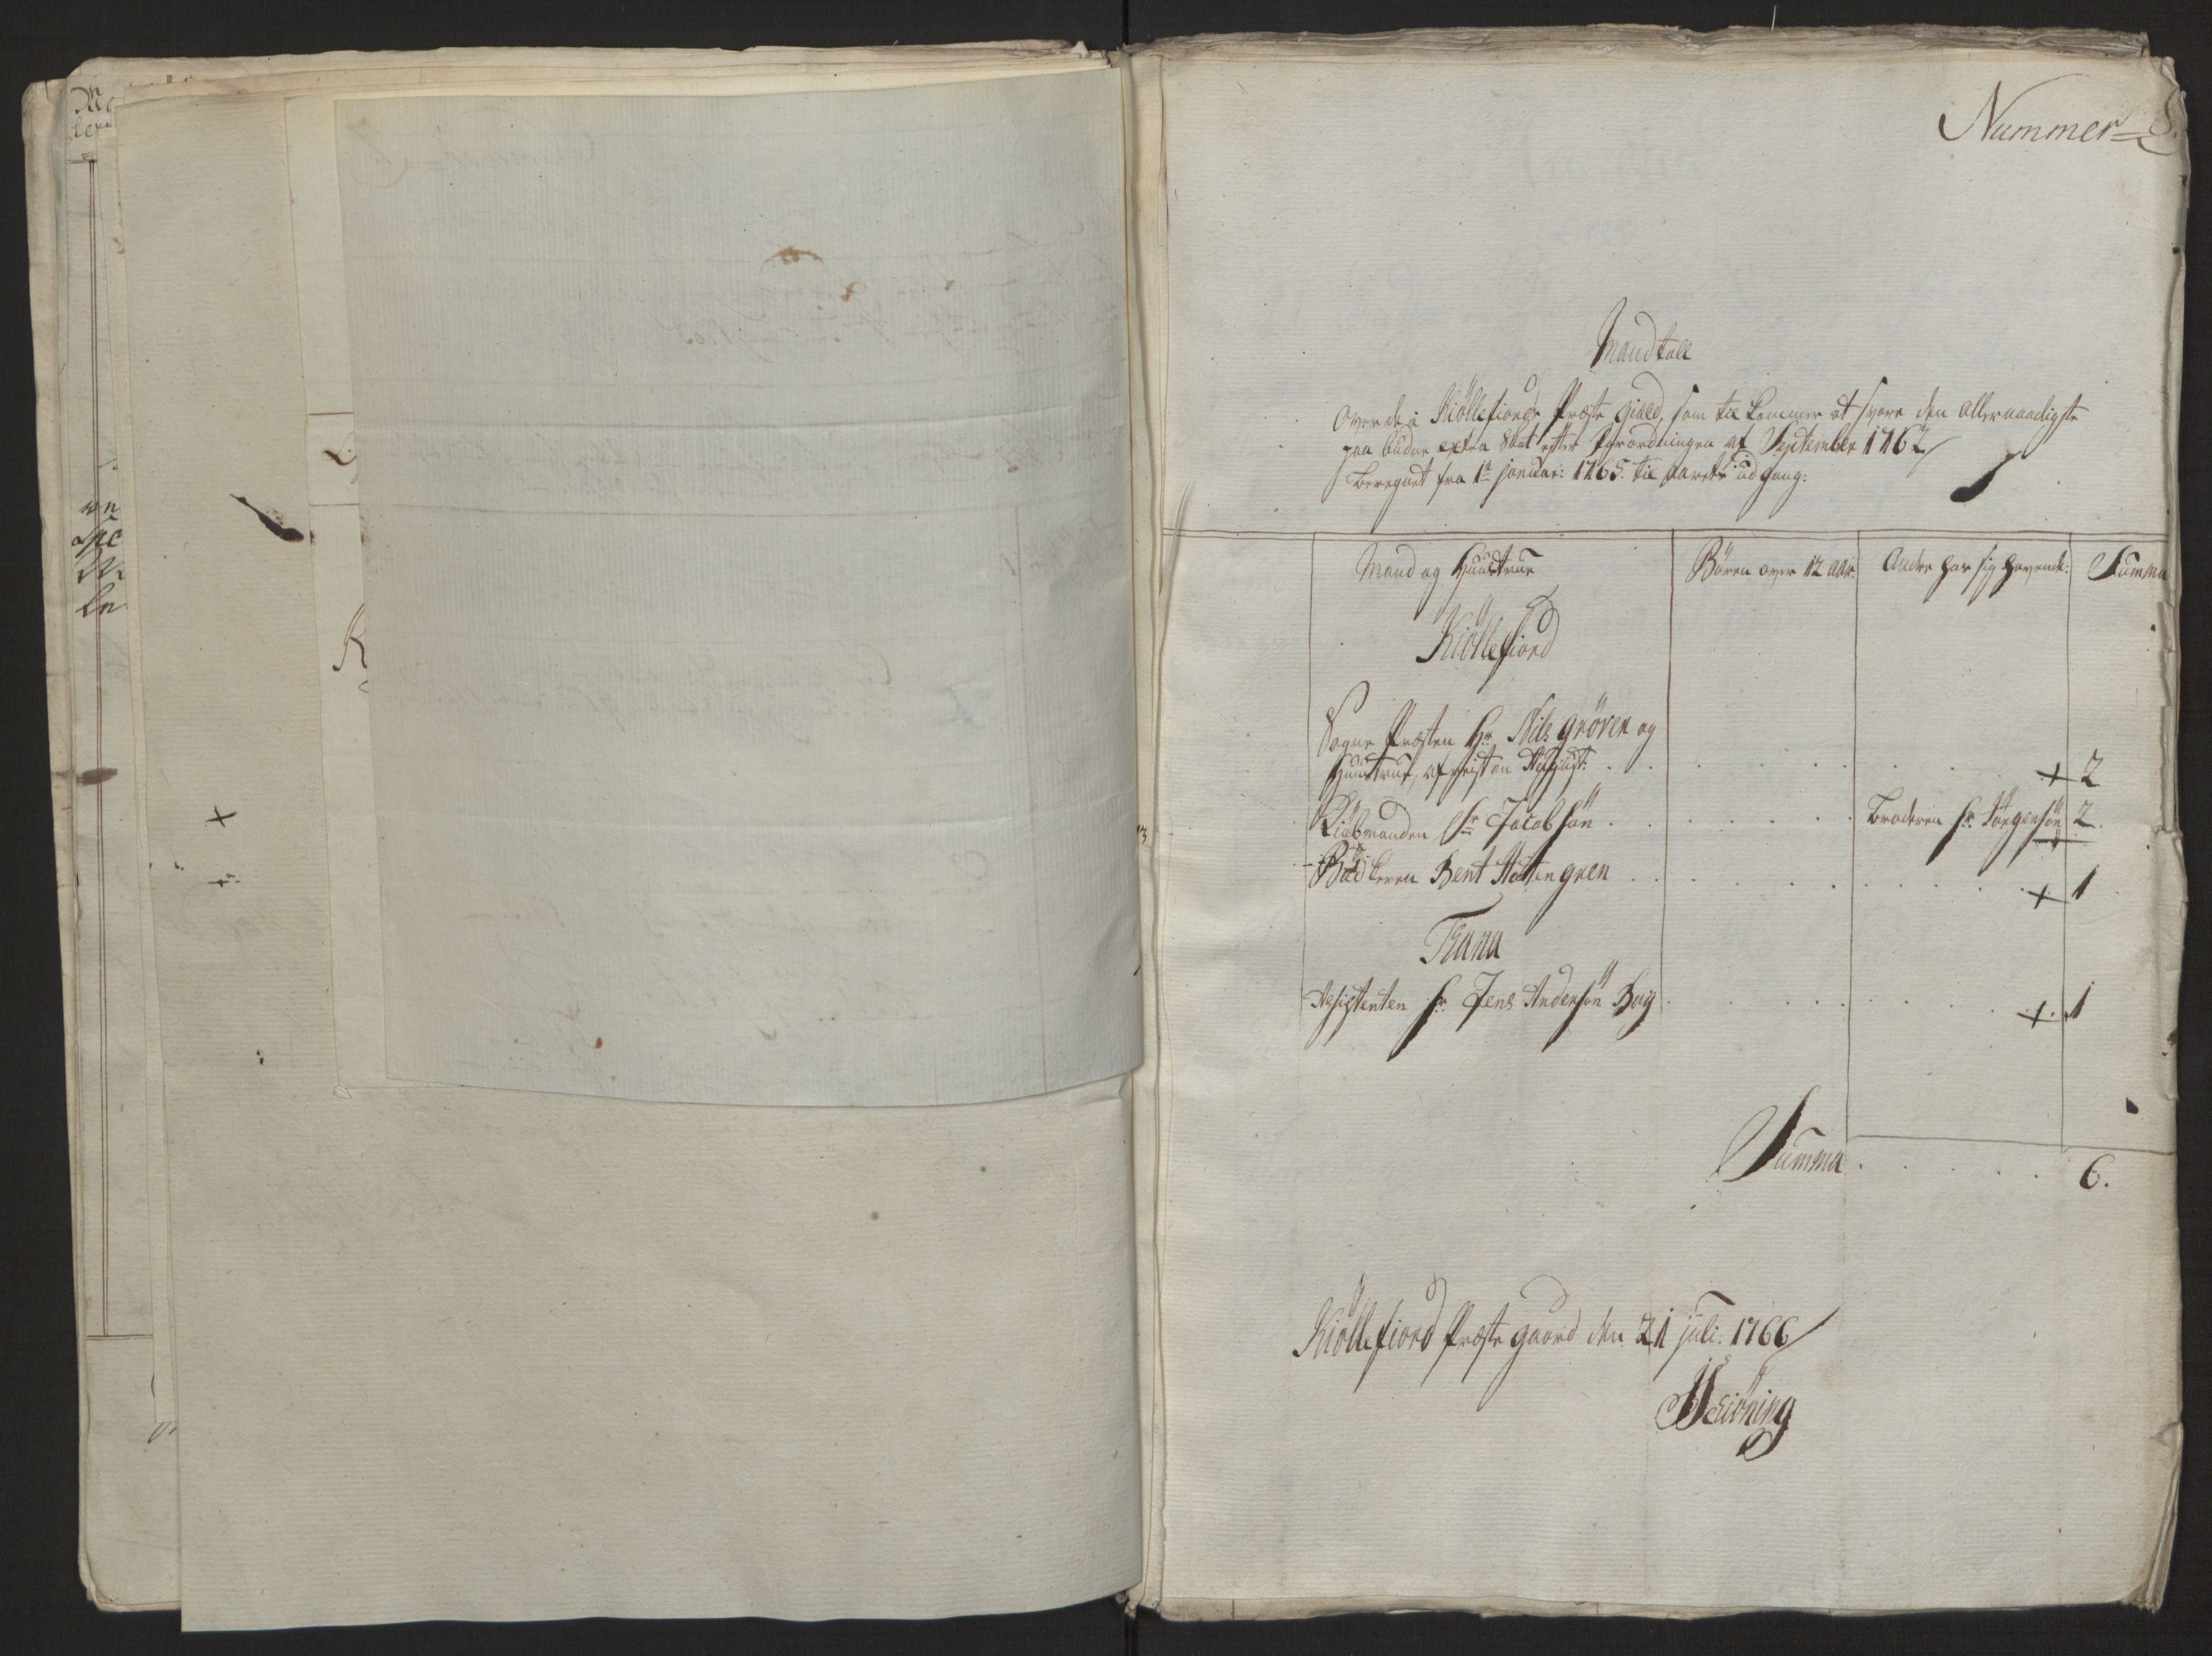 Nummer = 8.
Mandtall
Over de i Kiöllefiords Præste Gield, som til kommer at svare den allernaadigste
paa budne extra Skat efter Forordningen af September 1762
beregnet fra 1te januar: 1765. til Aarets udgang:
Mand og Huustrue
Bören over 12 aar:
Andre hos sig havende:
Summa
Kiöllefiord
Sogne Præsten Hr Nils Gröven og
Huustrue, afreist in August: + 2
Kiöbmanden Sr Jacobsön Broderen Sr Jörgensön 2.
Bödkeren Bent + 1
Tana
Assistenten Sr. Jens Andersön Buy + 1
Summa 6.
Kiöllefiord Præste gaard den 21 juli: 1766